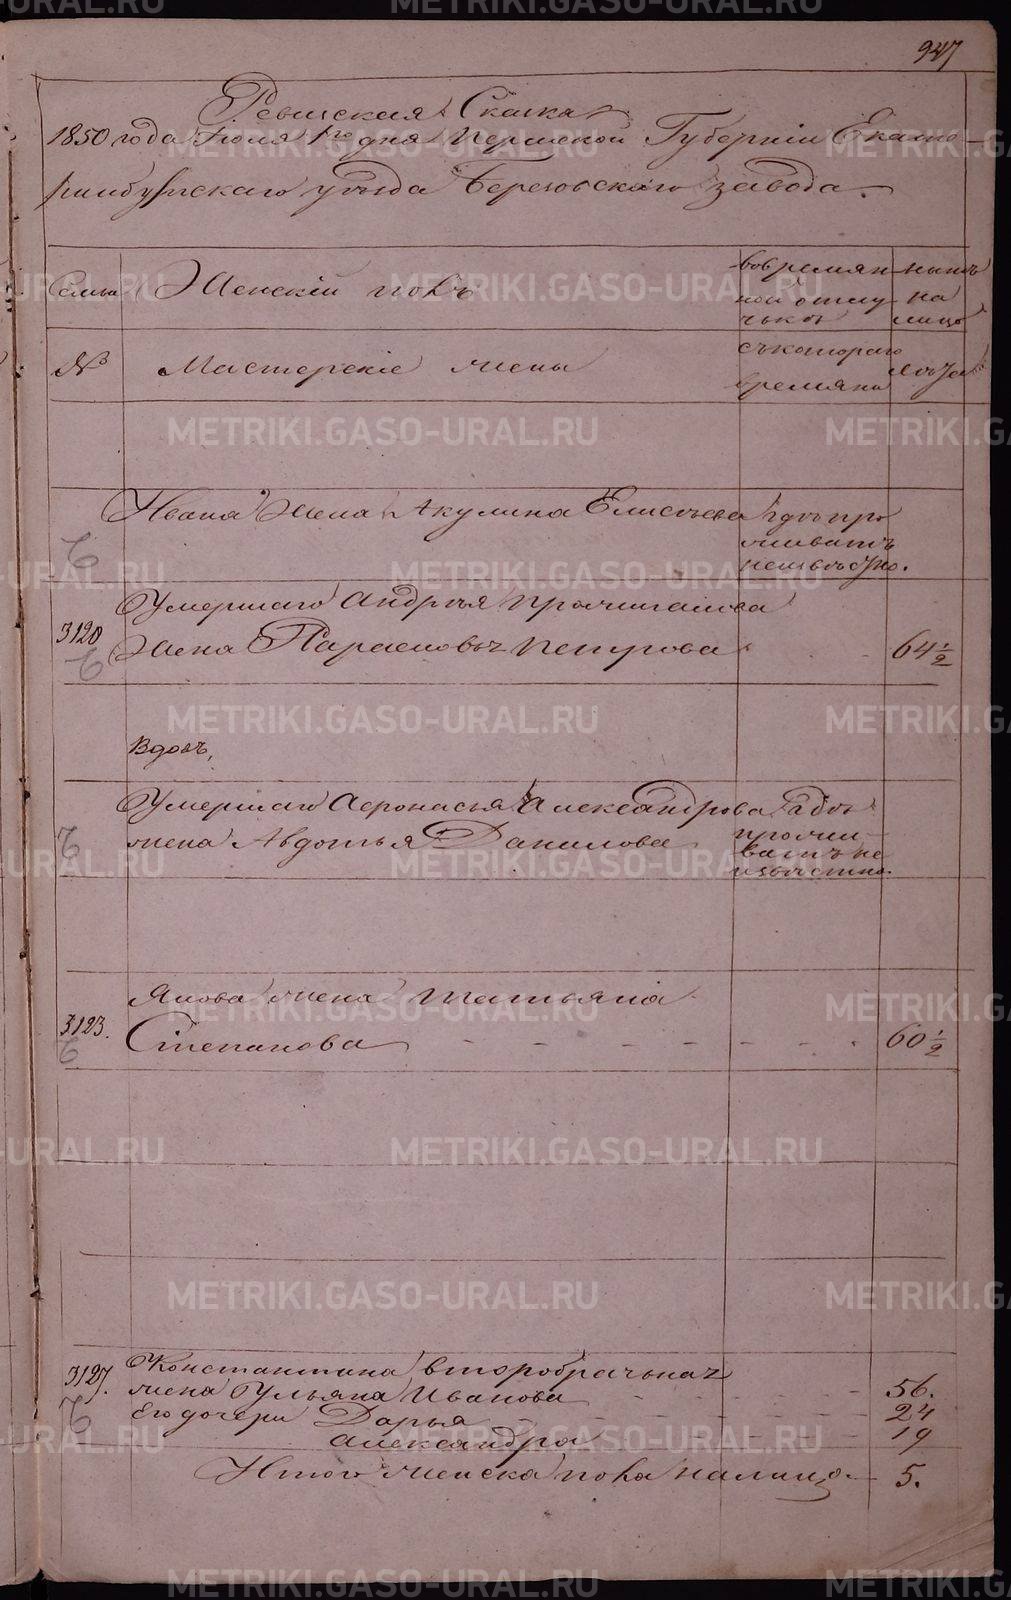 947
Ревизская Сказка
1850 года Июля 1го дня Пермской Губернiи Екате
ринбургскаго уѣзда Березовскаго завода.
Семьи Женскiй полъ
вовремян
ной отлу
чькѣ
нынѣ
на
лицо
№ Мастерскiе жены
съкотораго
времяни
лѣта
Ивана жена Акулина Елисѣева гдѣ про
живаетъ
неизвѣстно.
Умершаго Андрѣя
3120 жена Парасковья Петрова 64 1/2
Вдовъ,
Умершаго Афонасья Александрова Гдѣ
жена Авдотья Данилова прожи
ваетъ не
извѣстно.
Якова жена Татьяна
3123. Степанова 60 1/2
3127. Константина второбрачьная
жена Ульяна Иванова 56.
Его дочери Дарья 24
Александра 19
Итого женска пола налицо 5.
METRIKI.GASO-URAL.RU